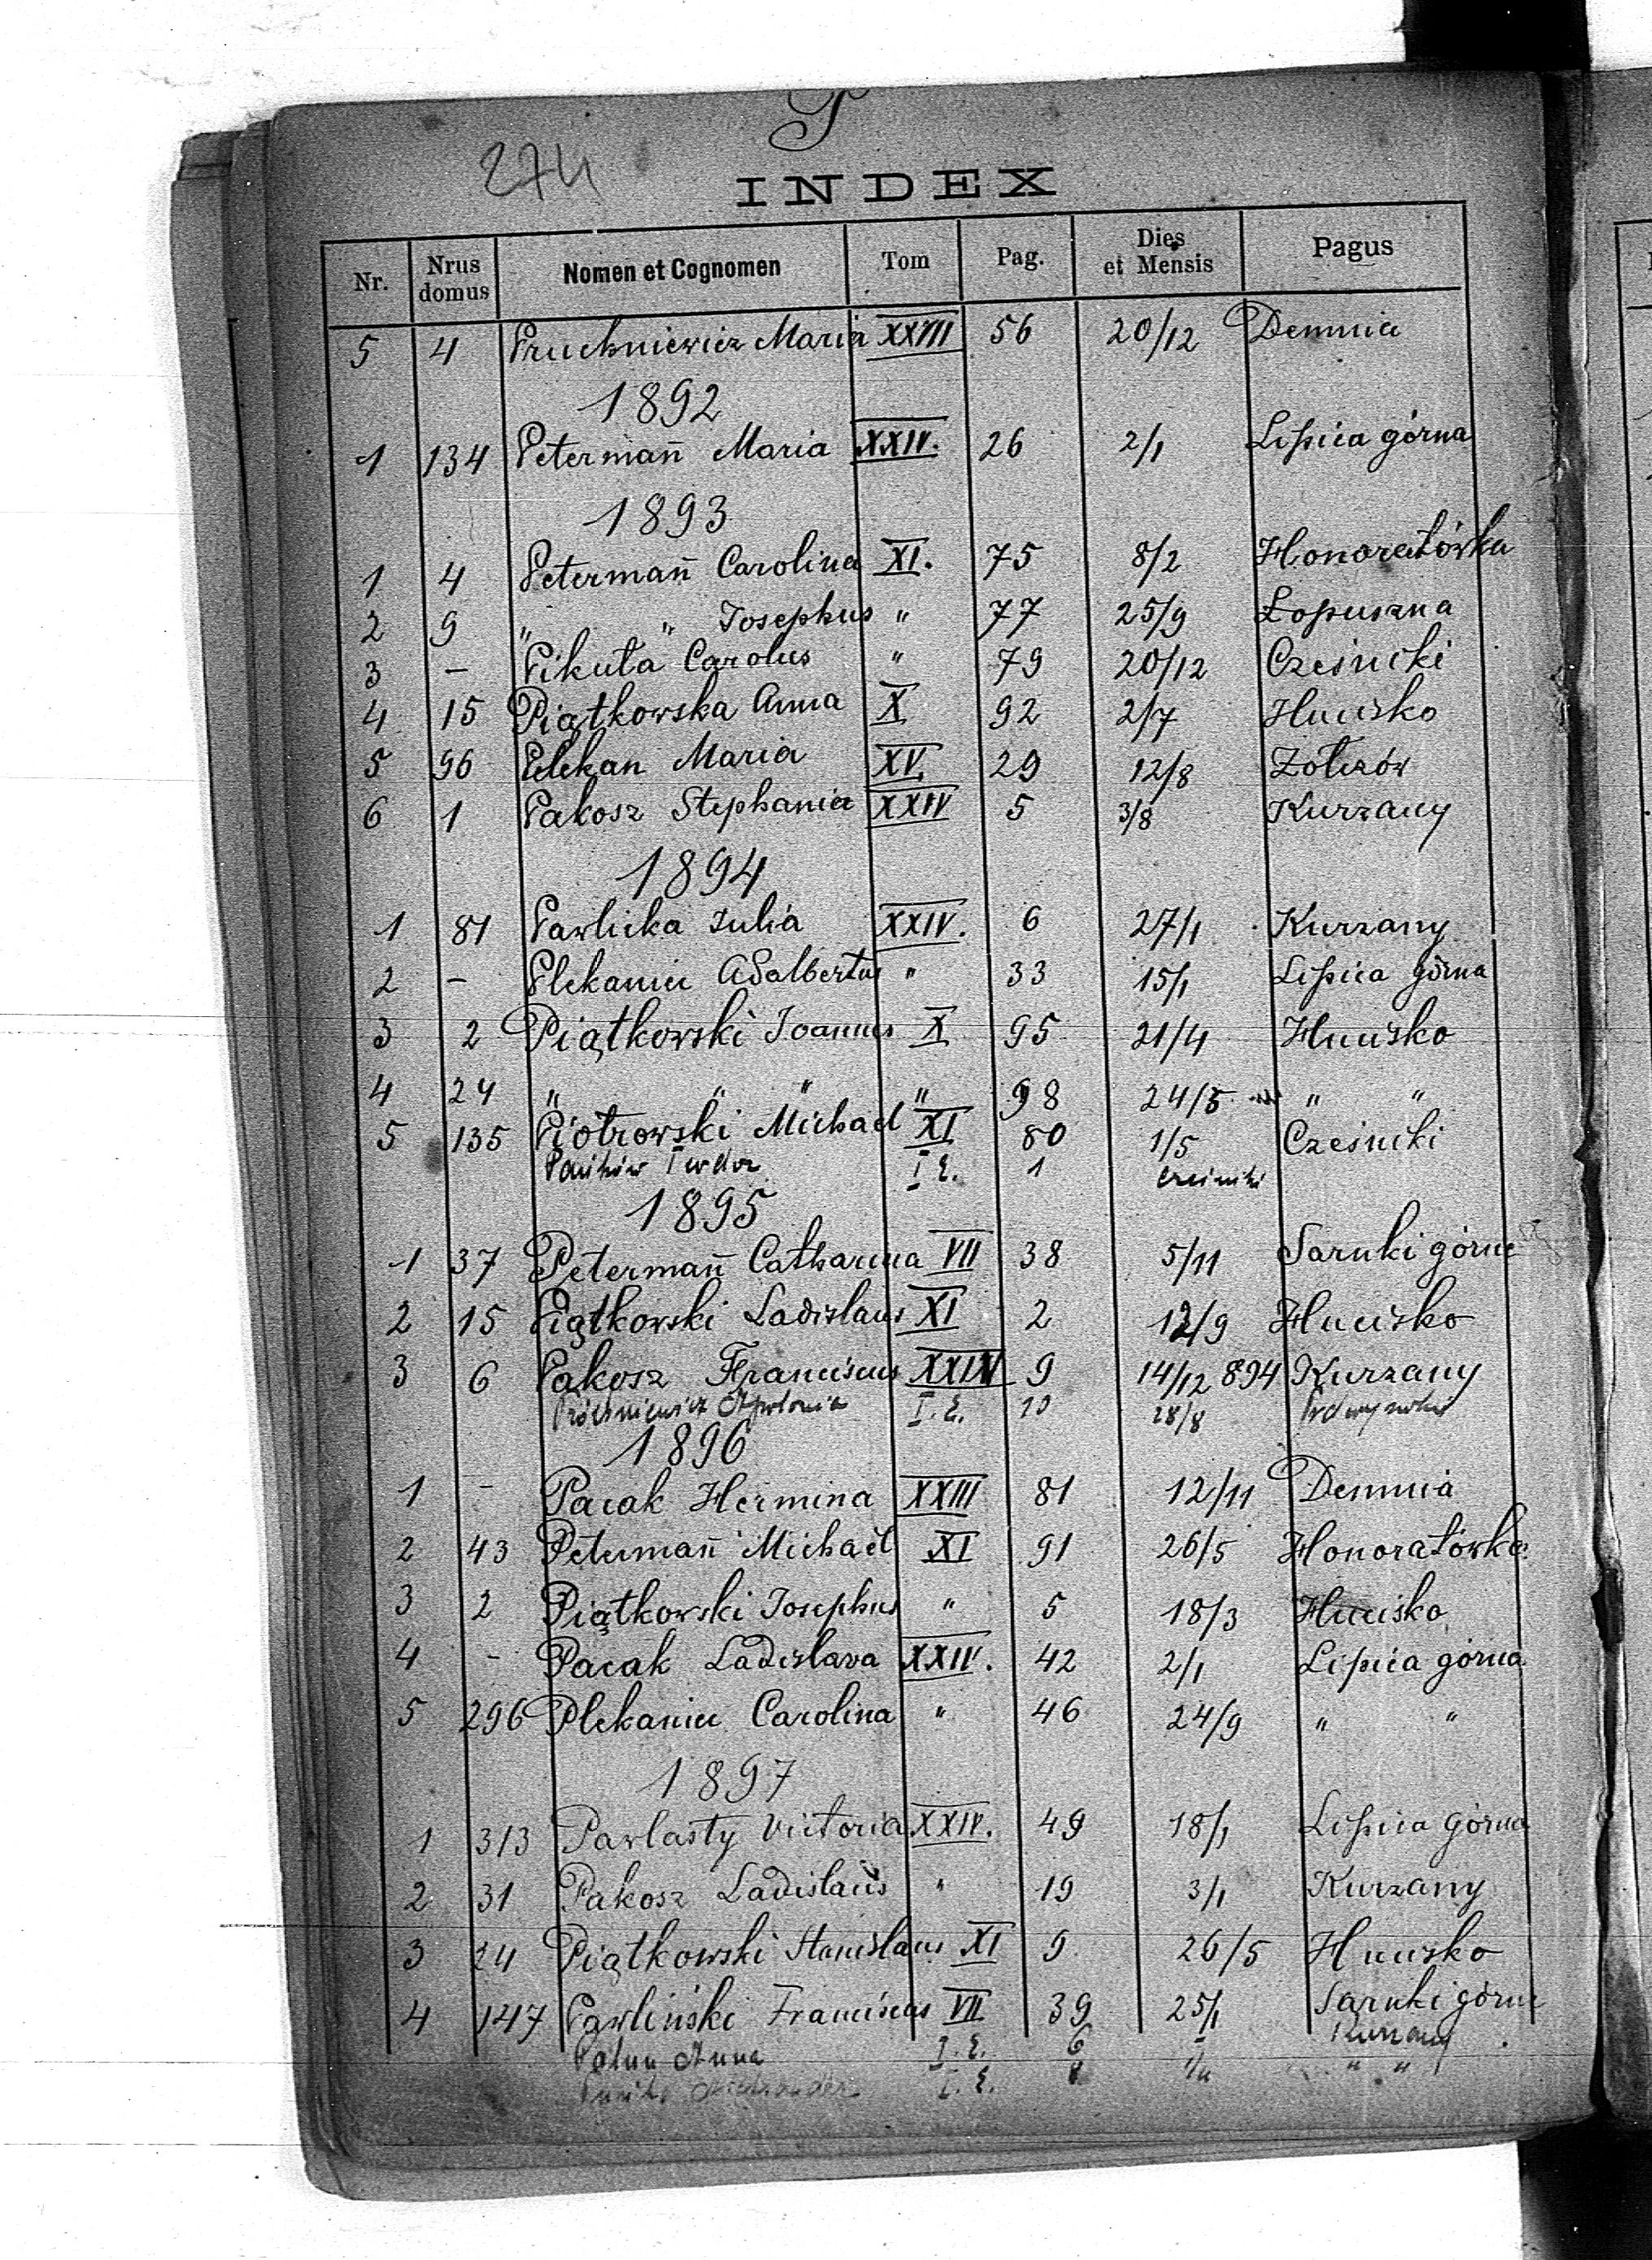 P
274
INDEX
Nr. Nrus domus Nomen et Cognomen Tom Pag. Dies et Mensis Pagus
5 4 Pruchniewicz Maria XXIII 56 20/12 Demnia
1892
1 134 Petermañ Maria XXIV. 26 2/1 Lipica górna
1893
1 4 Petermañ Carolina XI. 75 8/2 Honoratówka
2 9 " " Josephus " 77 25/9 Łopuszna
3 - Pikuta Carolus " 79 20/12 Cześniki
4 15 Piątkowska Anna X 92 2/7 Hucisko
5 96 Pelekan Maria XV 29 12/8 Żołczów
6 1 Pakosz Stephania XXIV 5 3/8 Kurzany
1894
1 81 Pawlicka Julia XXIV. 6 27/1 Kurzany
2 - Plekaniec Adalbertus " 33 15/1 Lipica górna
3 2 Piątkowski Joannes X 95 21/4 Hucisko
4 24 " " " " 98 24/5 " "
5 135 Piotrowski Michael XI 80 1/5 Cześniki
I E. 1 Cześniki
1895
1 37 Petermañ Catharina VII 38 5/11 Sarnki górne
2 15 Piątkowski Ladislaus XI 2 12/9 Hucisko
3 6 Pakosz Franciscus XXIV 9 14/12 894 Kurzany
Próchniewicz Apolonia I. E. 10 28/8
1896
1 - Pacak Hermina XXIII 81 12/11 Demnia
2 43 Petermañ Michaël XI 91 26/5 Honoratówka
3 2 Piątkowski Josephus " 5 18/3 Hucisko
4 - Pacak Ladislava XXIV. 42 2/1 Lipica górna
5 296 Plekaniec Carolina " 46 24/9 " "
1897
1 313 Pawlasty Victoria XXIV. 49 18/1 Lipica górna
2 31 Pakosz Ladislaus " 19 3/1 Kurzany
3 24 Piątkowski Stanislaus XI 9 26/5 Hucisko
4 147 Pawliński Franciscus VII 39 25/1 Sarnki górne
Anna I. E. 6 Kurzany
I. E. 8 " "